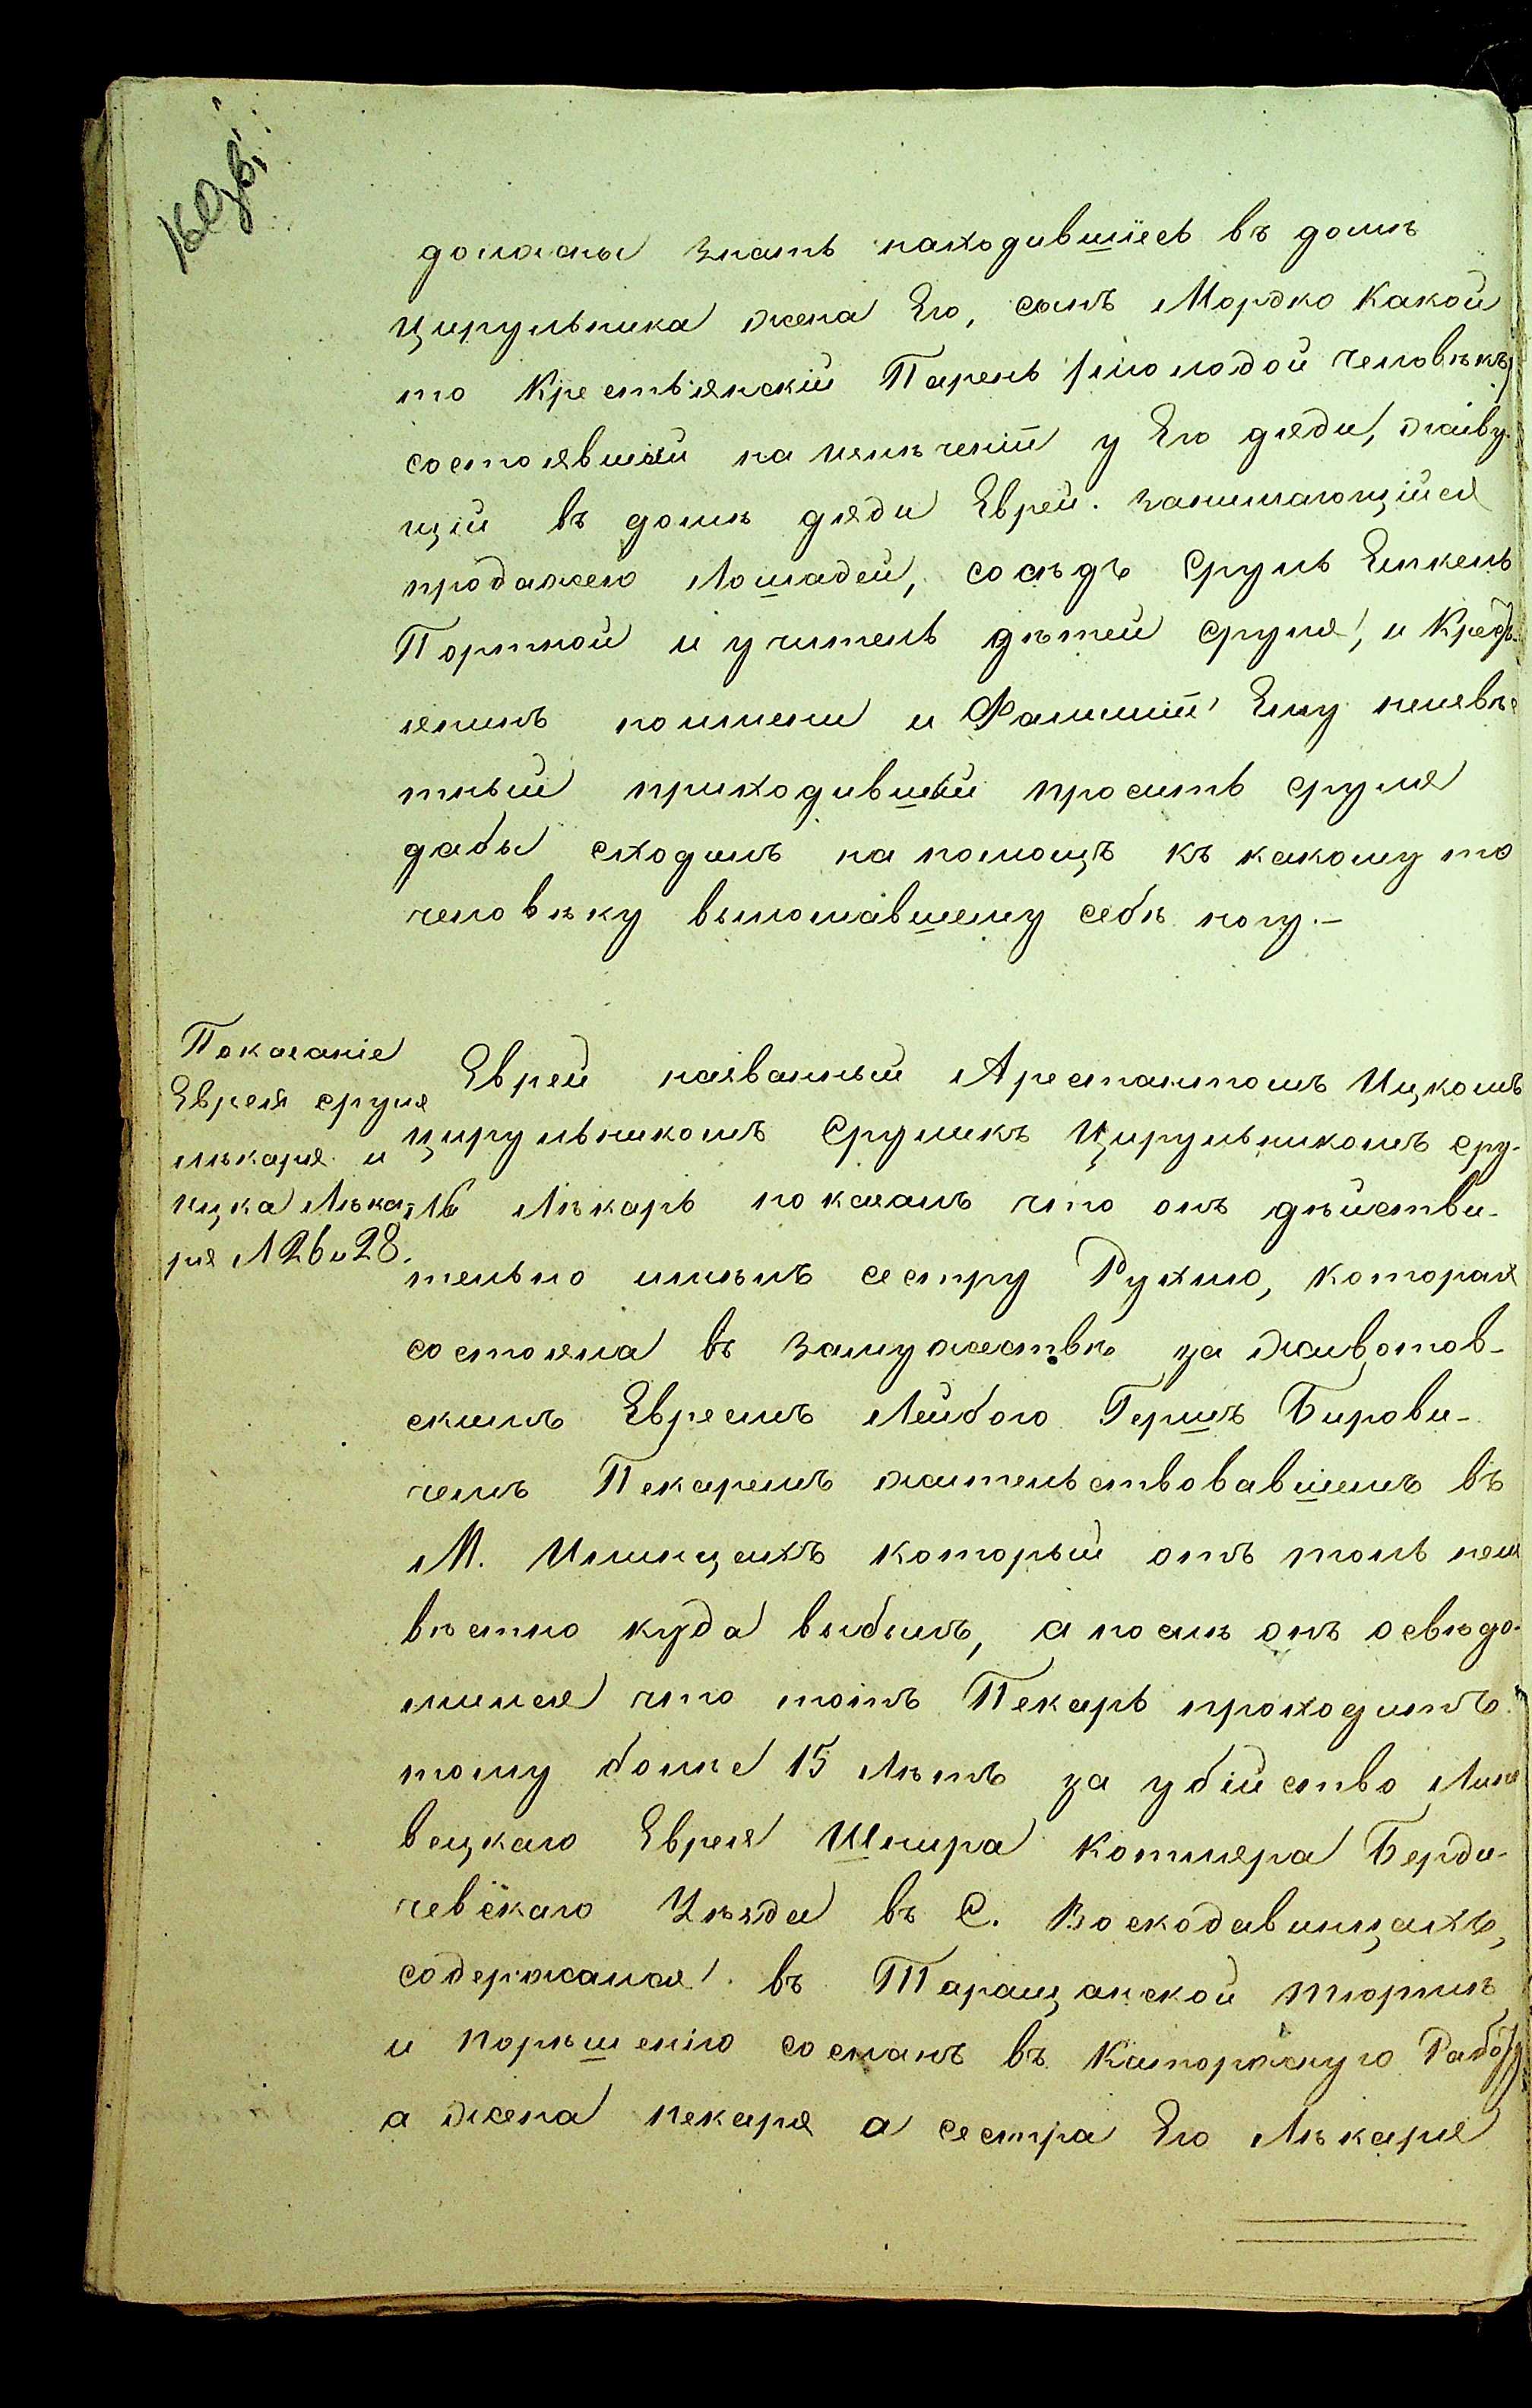 должны знать находившiеся въ домѣ
Цирульника жена Его, сынъ Мордко какой
то Крестьянскiй Парень /молодой человѣкъ/
состоявшiй на излѣченiи у Его дяди, живу-
щiй въ домѣ дяди Еврей. занимающiйся
продажею Лошадей, сосѣдъ Сруль Емкель
Портной и учитель дѣтей Сруля, и Кресть-
янинъ по имени и Фамилiи Ему неизвѣс
тный приходившiй просить Сруля
дабы сходилъ на помощъ къ какому то
человѣку выломавшему себѣ ногу.—
Показанiе
Еврея Сруля
лѣкаря и
Ицка Лѣка-
ря Л 26 и 28.
Еврей названный Арестантомъ Ицкомъ
Цирульникомъ Сруликъ Цирульникомъ Сру-
ль Лѣкарь показалъ что онъ дѣйстви-
тельно имѣлъ сестру Рухлю, которая
состояла въ замужествѣ за Животов-
скимъ Евреемъ Лейбою Гершъ Бирови-
чемъ Пекаремъ жительствовавшемъ въ
М. Илинцахъ который отъ толь неиз
вѣстно куда выбылъ, а послѣ онъ освѣдо-
мился что тотъ Пекарь проходитъ
тому болѣе 15 Лѣтъ за убiйство Лип
вецкаго Еврея Шпира Котляра Берди-
чевскаго Уѣзда въ С. Воскодавинцахъ,
содержался въ Таращанской тюрьмѣ
и порѣшенiю сосланъ въ Каторжную Работу
а жена пекаря а сестра Его Лѣкаря